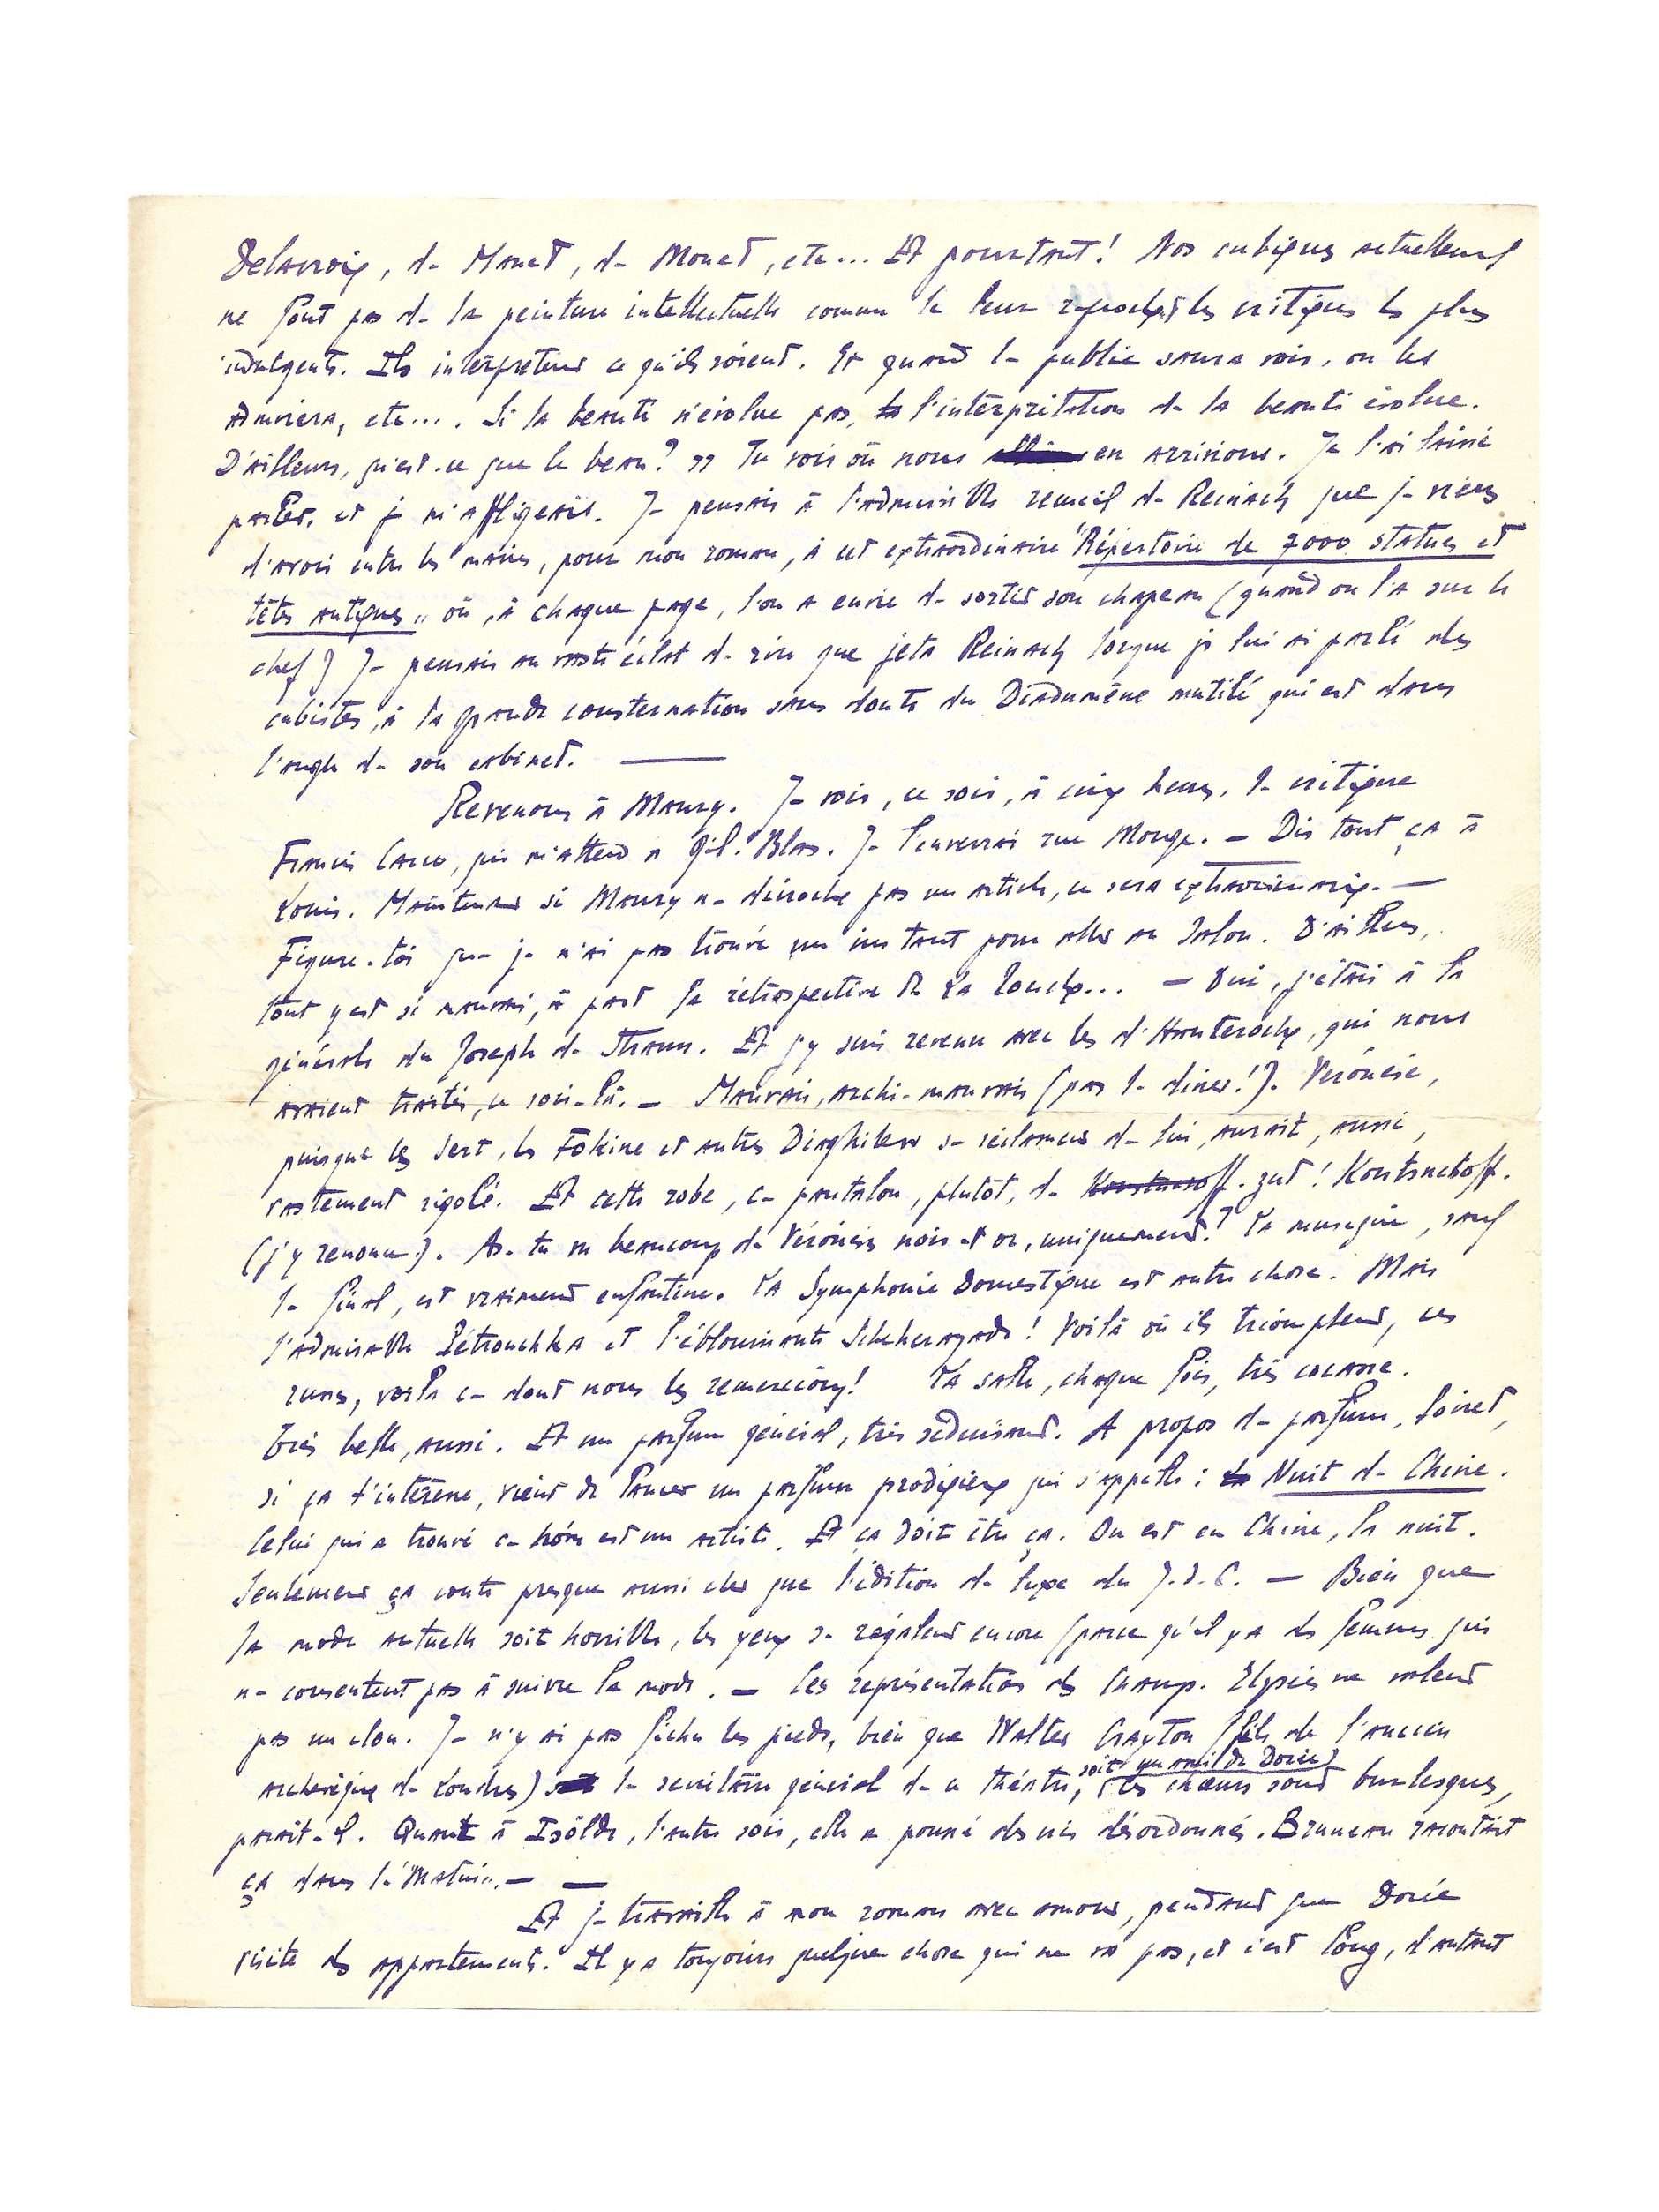 Delacroix, de Manet, de Monet, etc... Et pourtant! Nos cubiques actuellement
ne font pas de la peinture intellectuelle comme le leur reprochent les critiques les plus
indulgents. Ils interprètent ce qu'ils voient. Et quand le public saura voir, on les
admirera, etc.... Si la beauté n'évolue pas, l'interprétation de la beauté évolue.
D'ailleurs, qu'est-ce que le beau? " Tu vois où nous en arrivions. Je l'ai laissé
parler, et je m'affligeais. Je pensais à l'admirable recueil de Reinach que je viens
d'avoir entre les mains, pour mon roman, à cet extraordinaire "Répertoire de 7000 statues et
têtes antiques" où, à chaque page, l'on a envie de sortir son chapeau (quand on l'a sur le
chef) Je pensais au vaste éclat de rire que jeta Reinach lorsque je lui ai parlé des
cubistes, à la grande consternation sans doute du Diadumène mutilé qui est dans
l'angle de son cabinet. —
Revenons à Maury. Je vois, ce soir, à cinq heures, le critique
Francis Carco, qui m'attend a Gil-Blas. Je l'enverrai rue Monge. — Dis tout ça à
Louis. Maintenant si Maury ne décroche pas un article, ce sera extraordinaire. —
Figure-toi que je n'ai pas trouvé un instant pour aller au Salon. D'ailleurs,
tout y est si mauvais, à part la rétrospective de La Touche... — Oui, j'étais à la
générale du Joseph de Strauss. Et j'y suis revenu avec les d'Hauteroche, qui nous
avaient traités, ce soir-là. — Mauvais, archi-mauvais (pas le dîner!). Véronèse,
puisque les Sert, les Fokine et autres Diaghilew se réclament de lui, aurait, aussi,
vastement rigolé. Et cette robe, ce pantalon, plutôt, de Koustnesoff. zut! Koutsnetsoff.
(j'y renonce). As-tu vu beaucoup de Véronèses noir et or, uniquement? La musique, sauf
le final, est vraiment enfantine. La Symphonie Domestique est autre chose. Mais
l'admirable Pétrouchka et l'éblouissante Scheherazade! Voilà où ils triomphent, ces
russes, voilà ce dont nous les remercions! La salle, chaque fois, très cocasse.
Très belle, aussi. Et un parfum général, très séduisant. A propos de parfum, Poiret,
si ça t'intéresse, vient de lancer un parfum prodigieux qui s'appelle: la Nuit de Chine.
Celui qui a trouvé ce nom est un artiste. Et ça doit être ça. On est en Chine, la nuit.
Seulement ça coute presque aussi cher que l'édition de luxe du J.d.C. — Bien que
la mode actuelle soit horrible, les yeux se régalent encore (parce qu'il y a des femmes qui
ne consentent pas à suivre la mode. — Les représentations des Champs-Elysées ne valent
pas un clou. Je n'y ai pas fichu les pieds, bien que Walter Crayton (fils de l'ancien
archevêque de Londres) soit le secrétaire général de ce théâtre, (soit un ami de Dorée) Les chœurs sont burlesques,
parait-il. Quant à Isölde, l'autre soir, elle a poussé des cris désordonnés. Bruneau racontait
ça dans le "Matin". — —
Et je travaille à mon roman avec amour, pendant que Dorée
visite des appartements. Il y a toujours quelque chose qui ne va pas, et c'est long, d'autant